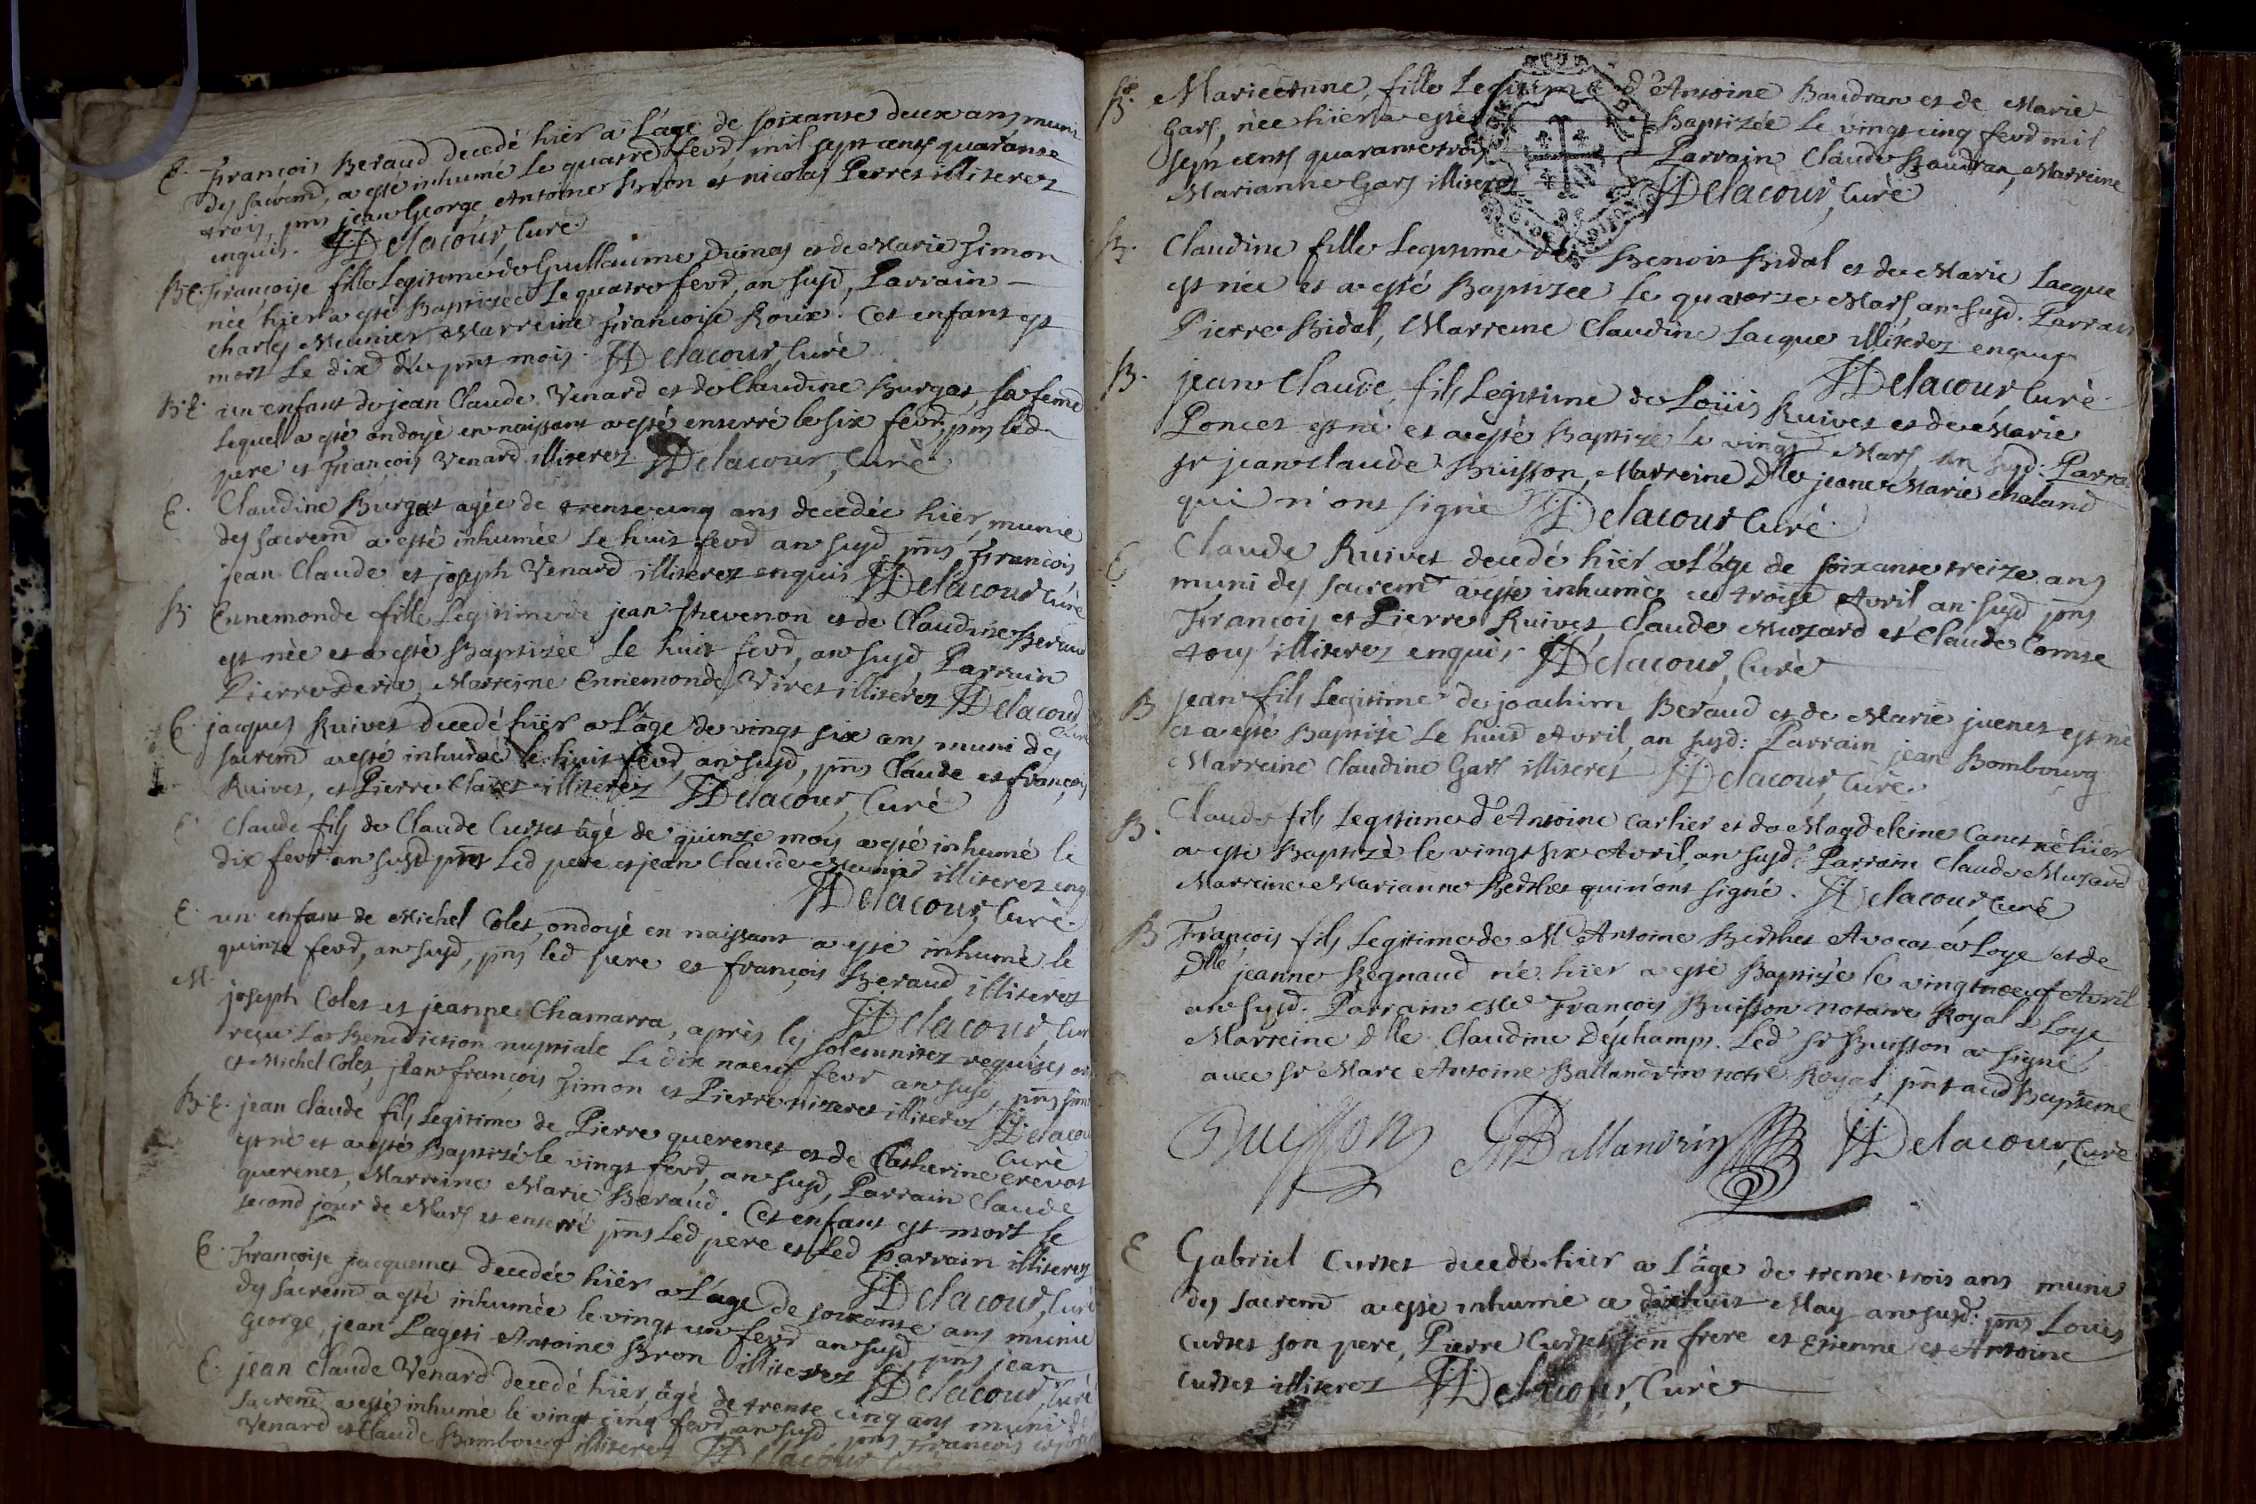 E. François Beraud decedé hier a l'age de soixante deux ans muni
des sacrem, a esté inhumé le quatre fevr, mil sept cents quarante
trois, pns jean George, Antoine Bron et nicolas Perret illiterez
enquis. Delacour, Curé
B.E. Françoise fille Legitime de Guillaume Dumas et de Marie Simon
née hier a esté Baptizée Le quatre fevr, an susd, Parrain
Charles Meunier, Marreine Françoise Roux. Cet enfant est
mort Le dix du pnt mois. Delacour, Curé
B.E. un enfant de jean Claude Venard et de Claudine Burgat, sa feme
Lequel a esté ondoyé en naissant a esté enterré le six fevr, pns led
pere et François Venard illiterez Delacour, Curé
E. Claudine Burgat agée de trente cinq ans decedée hier, munie
des sacrem a esté inhumée Le huit fevr an susd, pns François
jean Claude et joseph Venard illiterez enquis Delacour Curé
B. Ennemonde fille Legitime de jean Thevenon et de Claudine Beraud
est née et a esté Baptizée Le huit fevr, an susd, Parrain
Pierre Marreine Ennemonde Viret illiterez Delacour
Curé
E. jacques Ruivet decedé hier a l'age de vingt six ans muni des
sacrem a esté inhumé le huit fevr, an susd, pns Claude et françois
Ruivet, et Pierre Claret illiterez Delacour, Curé
E. Claude fils de Claude Curtet âgé de quinze mois a esté inhumé le
dix fevr an susd pns Led pere et jean Claude Meunier illiterez enq
Delacour, Curé.
E. un enfant de Michel Colet, ondoyé en naissant a esté inhumé le
quinze fevr, an susd, pns led pere et françois Beraud illiterez
Delacour, Cur
M. joseph Colet et jeanne Chamarra, après les solemnitez requises ont
reçu La Benediction nuptiale Le dix noeuf fevr an susd, pns
et Michel Colet, jean françois Simon et Pierre illiterez Delacou
Curé
B.E. jean Claude fils Legitime de Pierre querenet et de Catherine crevat
est né et a esté Baptizé le vingt fevr, an susd, Parrain Claude
querenet, Marreine Marie Beraud. Cet enfant est mort le
second jour de Mars et enterré pns Led pere et Led parrain illiterez
Delacour, Curé
E. Françoise jacquemet decedée hier a l'age de soixante ans munie
des sacrem a esté inhumée le vingt un fevr an susd, pns jean
George, jean Lageti Antoine Bron illiterez Delacour, Curé
E. jean Claude Venard decedé hier, âgé de trente cinq ans muni des
sacrem a esté inhumé le vingt cinq fevr, an susd pns François
Venard et Claude Bombourg illiterez Delacour
B. Marie fille Legitime d'Antoine Baudran et de Marie
Gars, née hier a esté Baptizée Le vingt cinq fevr mil
sept cents quarante trois Parrain Claude Baudran, Marreine
Marianne Gars illiterez Delacour, Curé
B. Claudine fille Legitime de Benoit Bidal et de Marie Lacque
est née et a esté Baptizée Le quatorze Mars, an susd. Parrain
Pierre Bidal, Marreine Claudine Lacque illiterez enquis
Delacour, Curé.
B. jean Claude, fils Legitime de Loüis Ruivet et de Marie
Poncet est né et a esté Baptizé le vingt Mars an susd: Parra
sr jean Claude Buisson, Marreine Dlle jeane Marie Chaland
qui n'ont signé Delacour Curé.
E. Claude Ruivet decedé hier a l'âge de soixante treize ans
muni des sacrem a esté inhumé ce troise Avril an susd pns
François et Pierre Ruivet, Claude Muzard et Claude Comte
tous illiterez enquis Delacour, Curé
B. jean fils Legitime de joachim Beraud et de Marie juenet est né
et a esté Baptizé Le huit Avril, an susd: Parrain jean Bombourg
Marreine Claudine Gars illiteret Delacour, Curé.
B. Claude fils Legitime d'Antoine Carlier et de Magdeleine Canet né hier
a esté Baptizé le vingt six Avril, an susd: Parrain Claude Muzard
Marreine Marianne Berthet qui n'ont signé. Delacour, Curé
B. François fils Legitime de Me Antoine Berthet Avocat a Loye et de
Dlle jeanne Regnaud né hier a esté Baptizé le vingt noeuf Avril
an susd. Parrain Me François Buisson notaire Royal a Loye
Marreine Dlle Claudine Deschamps. Led Sr Buisson a signé
avec sr Marc Antoine Ballandrin notre Royal, pnt aud Baptême
Buisson Ballandrin Delacour, Curé
E. Gabriel Curtet decedé hier a l'âge de trente trois ans muni
des sacrem a esté inhumé ce dixhuit May an susd. pns Louis
Curtet son pere, Pierre Curtet son frere et Etienne et Antoine
Curtet illiterez Delacour, Curé